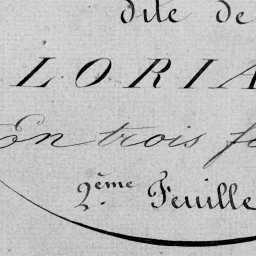 dite de
LORIA
En trois f
2.ème Feuille